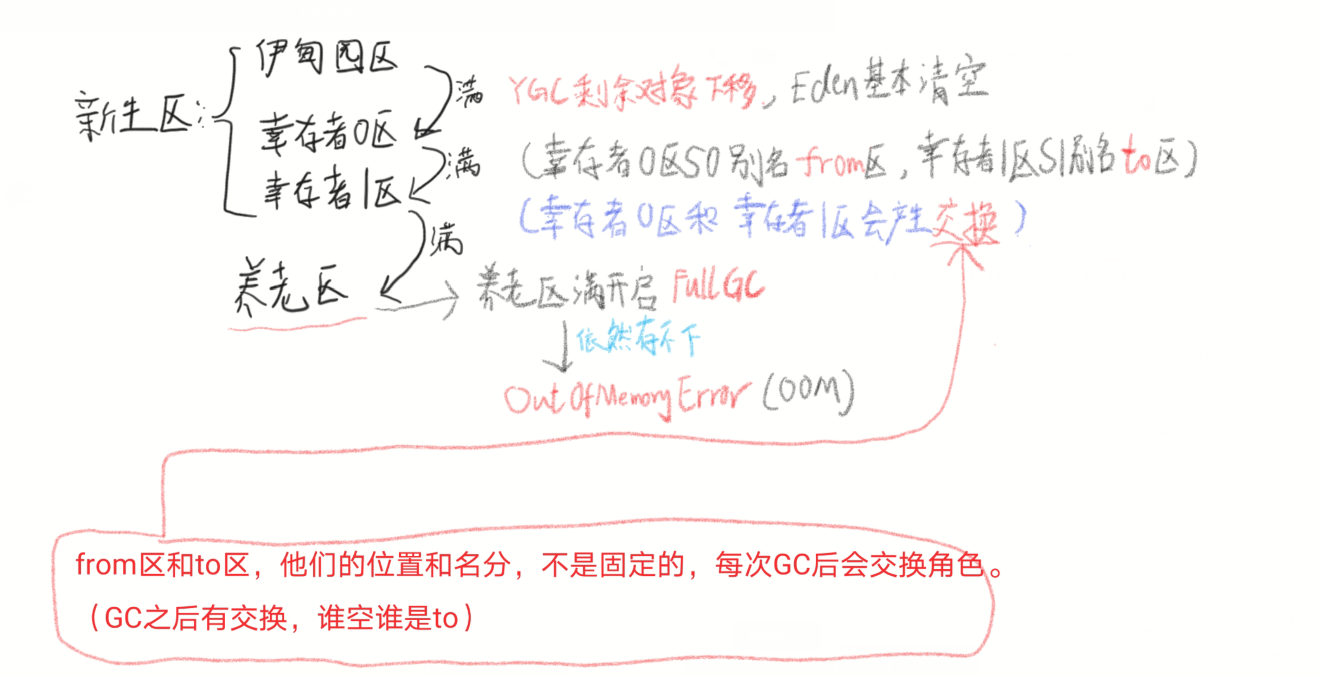 新生区：
伊甸园区
幸存者0区
幸存者1区
满
满
满
养老区
YGC剩余对象下移，Eden基本清空
（幸存者0区S0别名from区，幸存者1区S1别名to区）
（幸存者0区和幸存者1区会产生交换）
养老区满开启FullGC
依然存不下
OutOfMemoryError（OOM）
from区和to区，他们的位置和名分，不是固定的，每次GC后会交换角色。
（GC之后有交换，谁空谁是to）